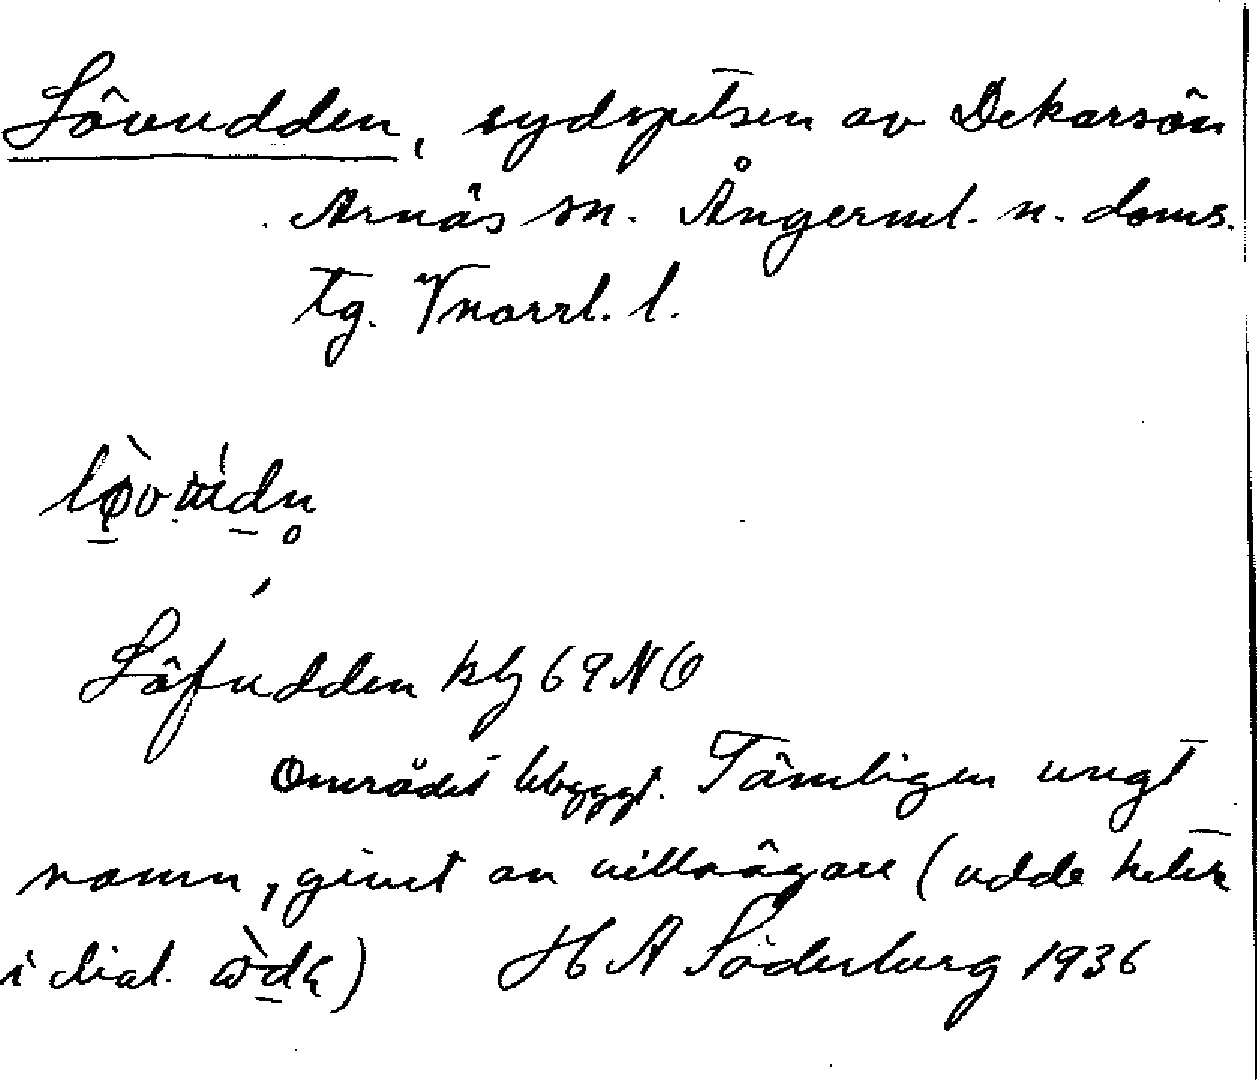 Lövudden, sydspetsen av Dekarsön
Arnäs sn. Ångerml. n. doms.
tg. Vnorrl. l.
Löfudden kbl 69 NO
Området bebyggt. Tämligen ungt
namn, givet av villaägare (udde heter
i dial.
H A Söderberg 1936